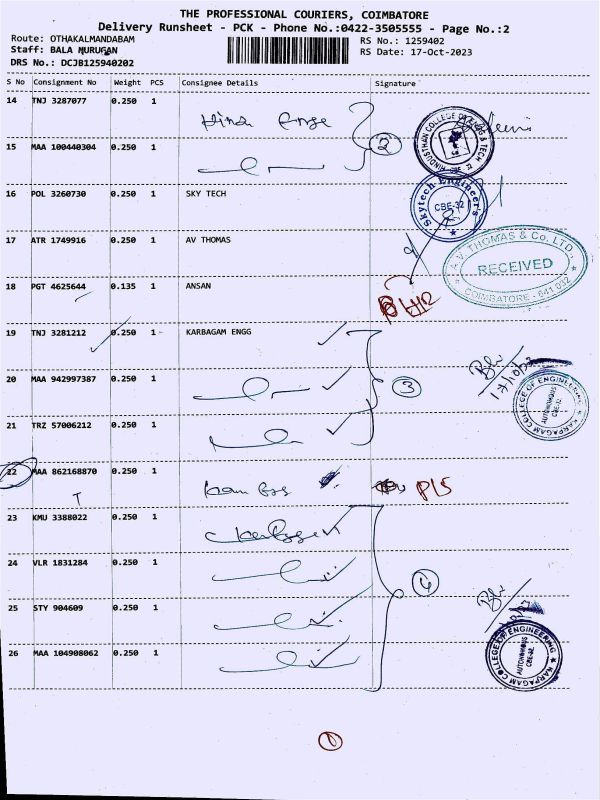 THE PROFESSIONAL COURIERS, COIMBATORE
Delivery Runsheet - PCK - Phone No.:0422-3505555 - Page No.:2
Route: OTHAKALMANDABAM
RS No.: 1259402
Staff: BALA MURUGAN
RS Date: 17-Oct-2023
DRS No.: DCJB125940202
S No Consignment No Weight PCS Consignee Details Signature
14 TNJ 3287077 0.250 1
2
HINDUSTHAN COLLEGE OF ENGG & TECH
15 MAA 100440304 0.250 1
16 POL 3260730 0.250 1 SKY TECH
Skytech Engineer's
CBE-32
17 ATR 1749916 0.250 1 AV THOMAS
A.V. THOMAS & Co. LTD.,
RECEIVED
COIMBATORE - 641 032
18 PGT 4625644 0.135 1 ANSAN
19 TNJ 3281212 0.250 1 KARBAGAM ENGG
20 MAA 942997387 0.250 1
3
KARPAGAM COLLEGE OF ENGINEERING
AUTONOMOUS
CBE-32
21 TRZ 57006212 0.250 1
22 MAA 862168870 0.250 1
T
23 KMU 3388022 0.250 1
24 VLR 1831284 0.250 1
4
25 STY 904609 0.250 1
26 MAA 104908062 0.250 1
KARPAGAM COLLEGE OF ENGINEERING
AUTONOMOUS
CBE-32
1